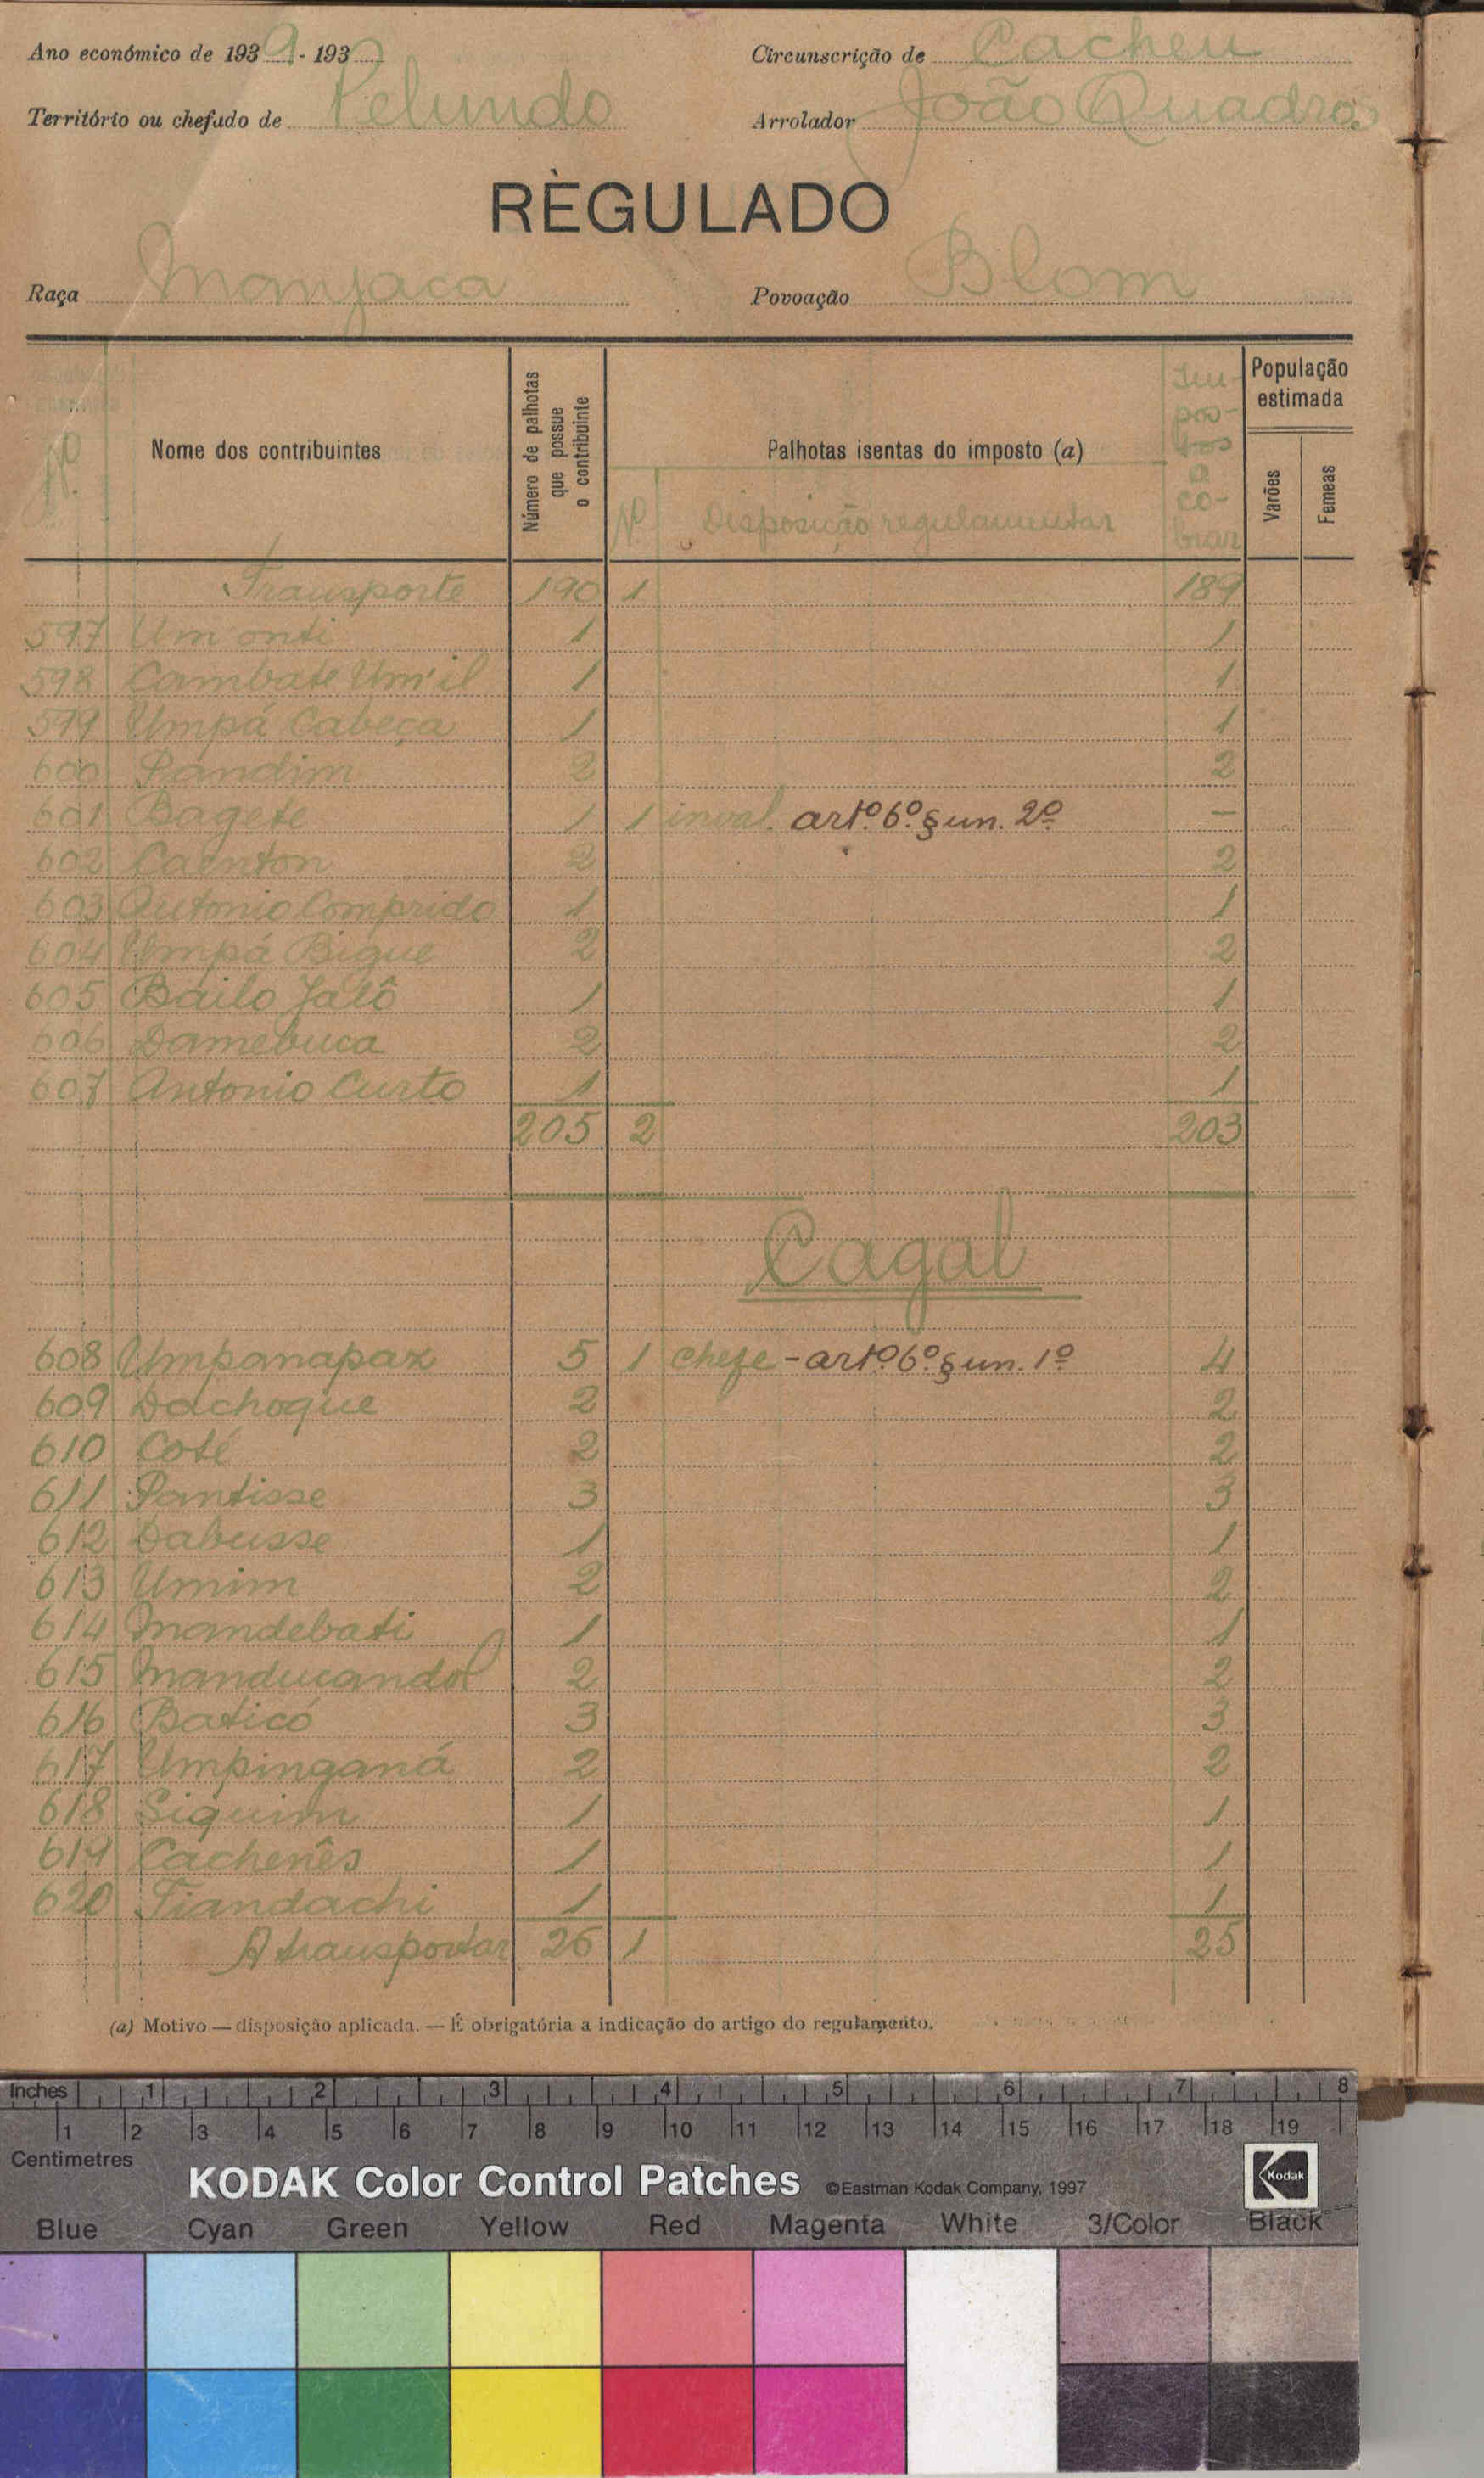 Ano económico de 1939 - 193
Circunscrição de Cacheu
Território ou chefado de Pelundo
Arrolador João Quadros
RÈGULADO
Raça Manjaca
Povoação Blom
Nº
Nome dos contribuintes
Número de palhotas que possue o contribuinte
Palhotas isentas do imposto (a)
Nº
Disposição regulamentar
Impostos a cobrar
População estimada
Varões
Femeas
Transporte 190 1 189
597 Um'onti 1 1
598 Cambate Um'il 1 1
599 Umpá Cabeça 1 1
600 Pandim 2 2
601 Bagete 1 1 inval. artº. 6º. § un. 2º —
602 Caenton 2 2
603 Antonio Comprido 1 1
604 Umpá Bigue 2 2
605 Bailo Jalô 1 1
606 Damebuca 2 2
607 Antonio Curto 1 1
205 2 203
Cagal
608 Umpanapax 5 1 chefe - artº. 6º. § un. 1º 4
609 Dachoque 2 2
610 Coté 2 2
611 Pantisse 3 3
612 Dabusse 1 1
613 Umim 2 2
614 Mandebati 1 1
615 Manducandol 2 2
616 Baticó 3 3
617 Umpinganá 2 2
618 Siquim 1 1
619 Cachenês 1 1
620 Tiandachi 1 1
A transportar 26 1 25
(a) Motivo — disposição aplicada. — É obrigatória a indicação do artigo do regulamento.
Inches 1 2 3 4 5 6 7 8
1 2 3 4 5 6 7 8 9 10 11 12 13 14 15 16 17 18 19
Centimetres
KODAK Color Control Patches ©Eastman Kodak Company, 1997 Kodak
Blue Cyan Green Yellow Red Magenta White 3/Color Black